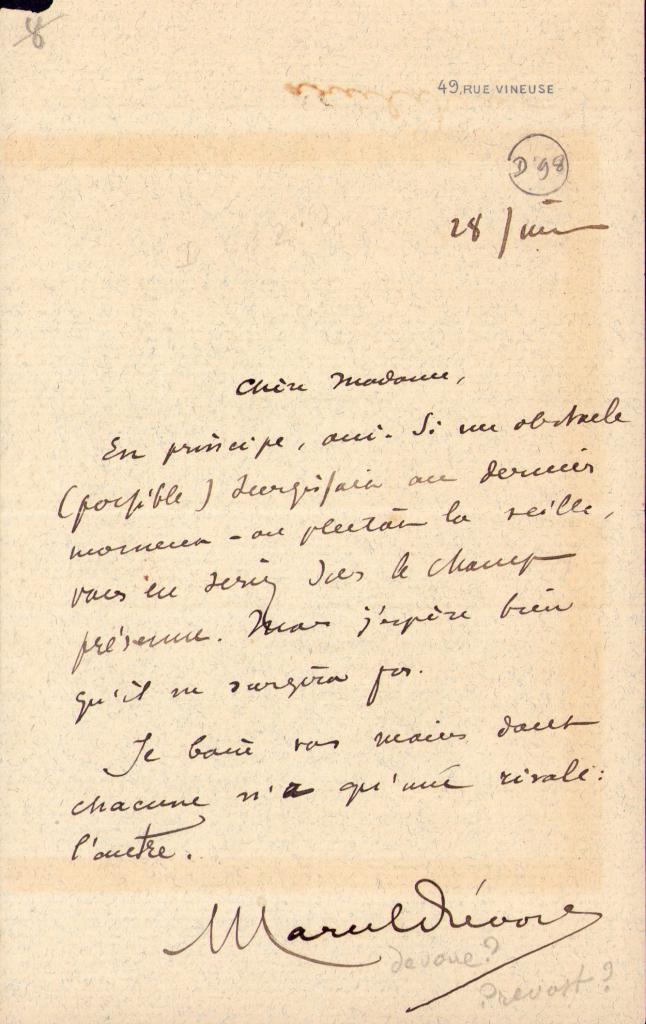 8
49, RUE VINEUSE
D'98
28 juin
Chère Madame,
En principe, oui. Si un obstacle
(possible) surgissait au dernier
moment - ou plutôt la veille,
vous en seriez sur le champ
prévenue. Mais j'espère bien
qu'il ne surgira pas.
Je baise vos mains dont
chacune n'a qu'une rivale :
l'autre.
Marcel Prévost
devoue ?
Prevost ?